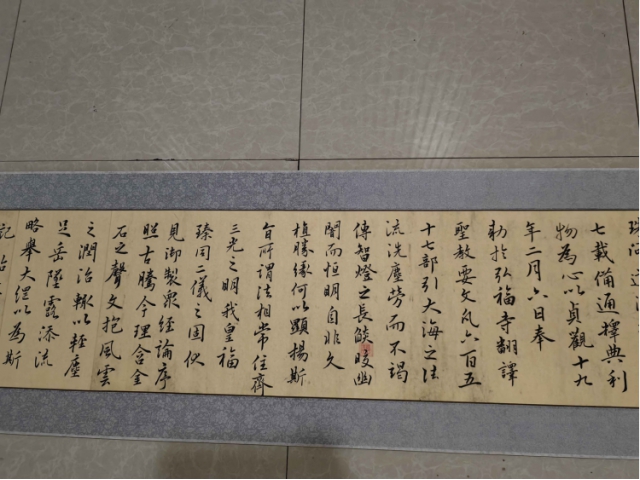 問道
七載備通釋典利
物為心以貞觀十九
年二月六日奉
勅於弘福寺翻譯
聖教要文凡六百五
十七部引大海之法
流洗塵勞而不竭
傳智燈之長燄皎幽
闇而恒明自非久
植勝緣何以顯揚斯
旨所謂法相常住齊
三光之明我皇福
臻同二儀之固伏
見御製衆經論序
照古騰今理含金
石之聲文抱風雲
之潤治輒以輕塵
足岳墜露添流
略舉大綱以為斯
記治